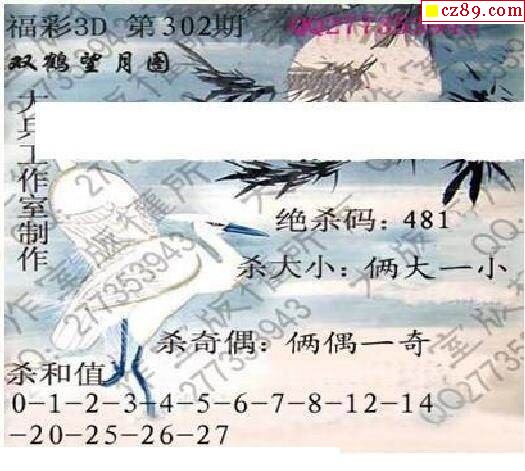 cz89.com
福彩3D 第302期
QQ277353943
双鹤望月图
大兵工作室制作
绝杀码：481
杀大小：俩大一小
杀奇偶：俩偶一奇
杀和值
0-1-2-3-4-5-6-7-8-12-14
-20-25-26-27